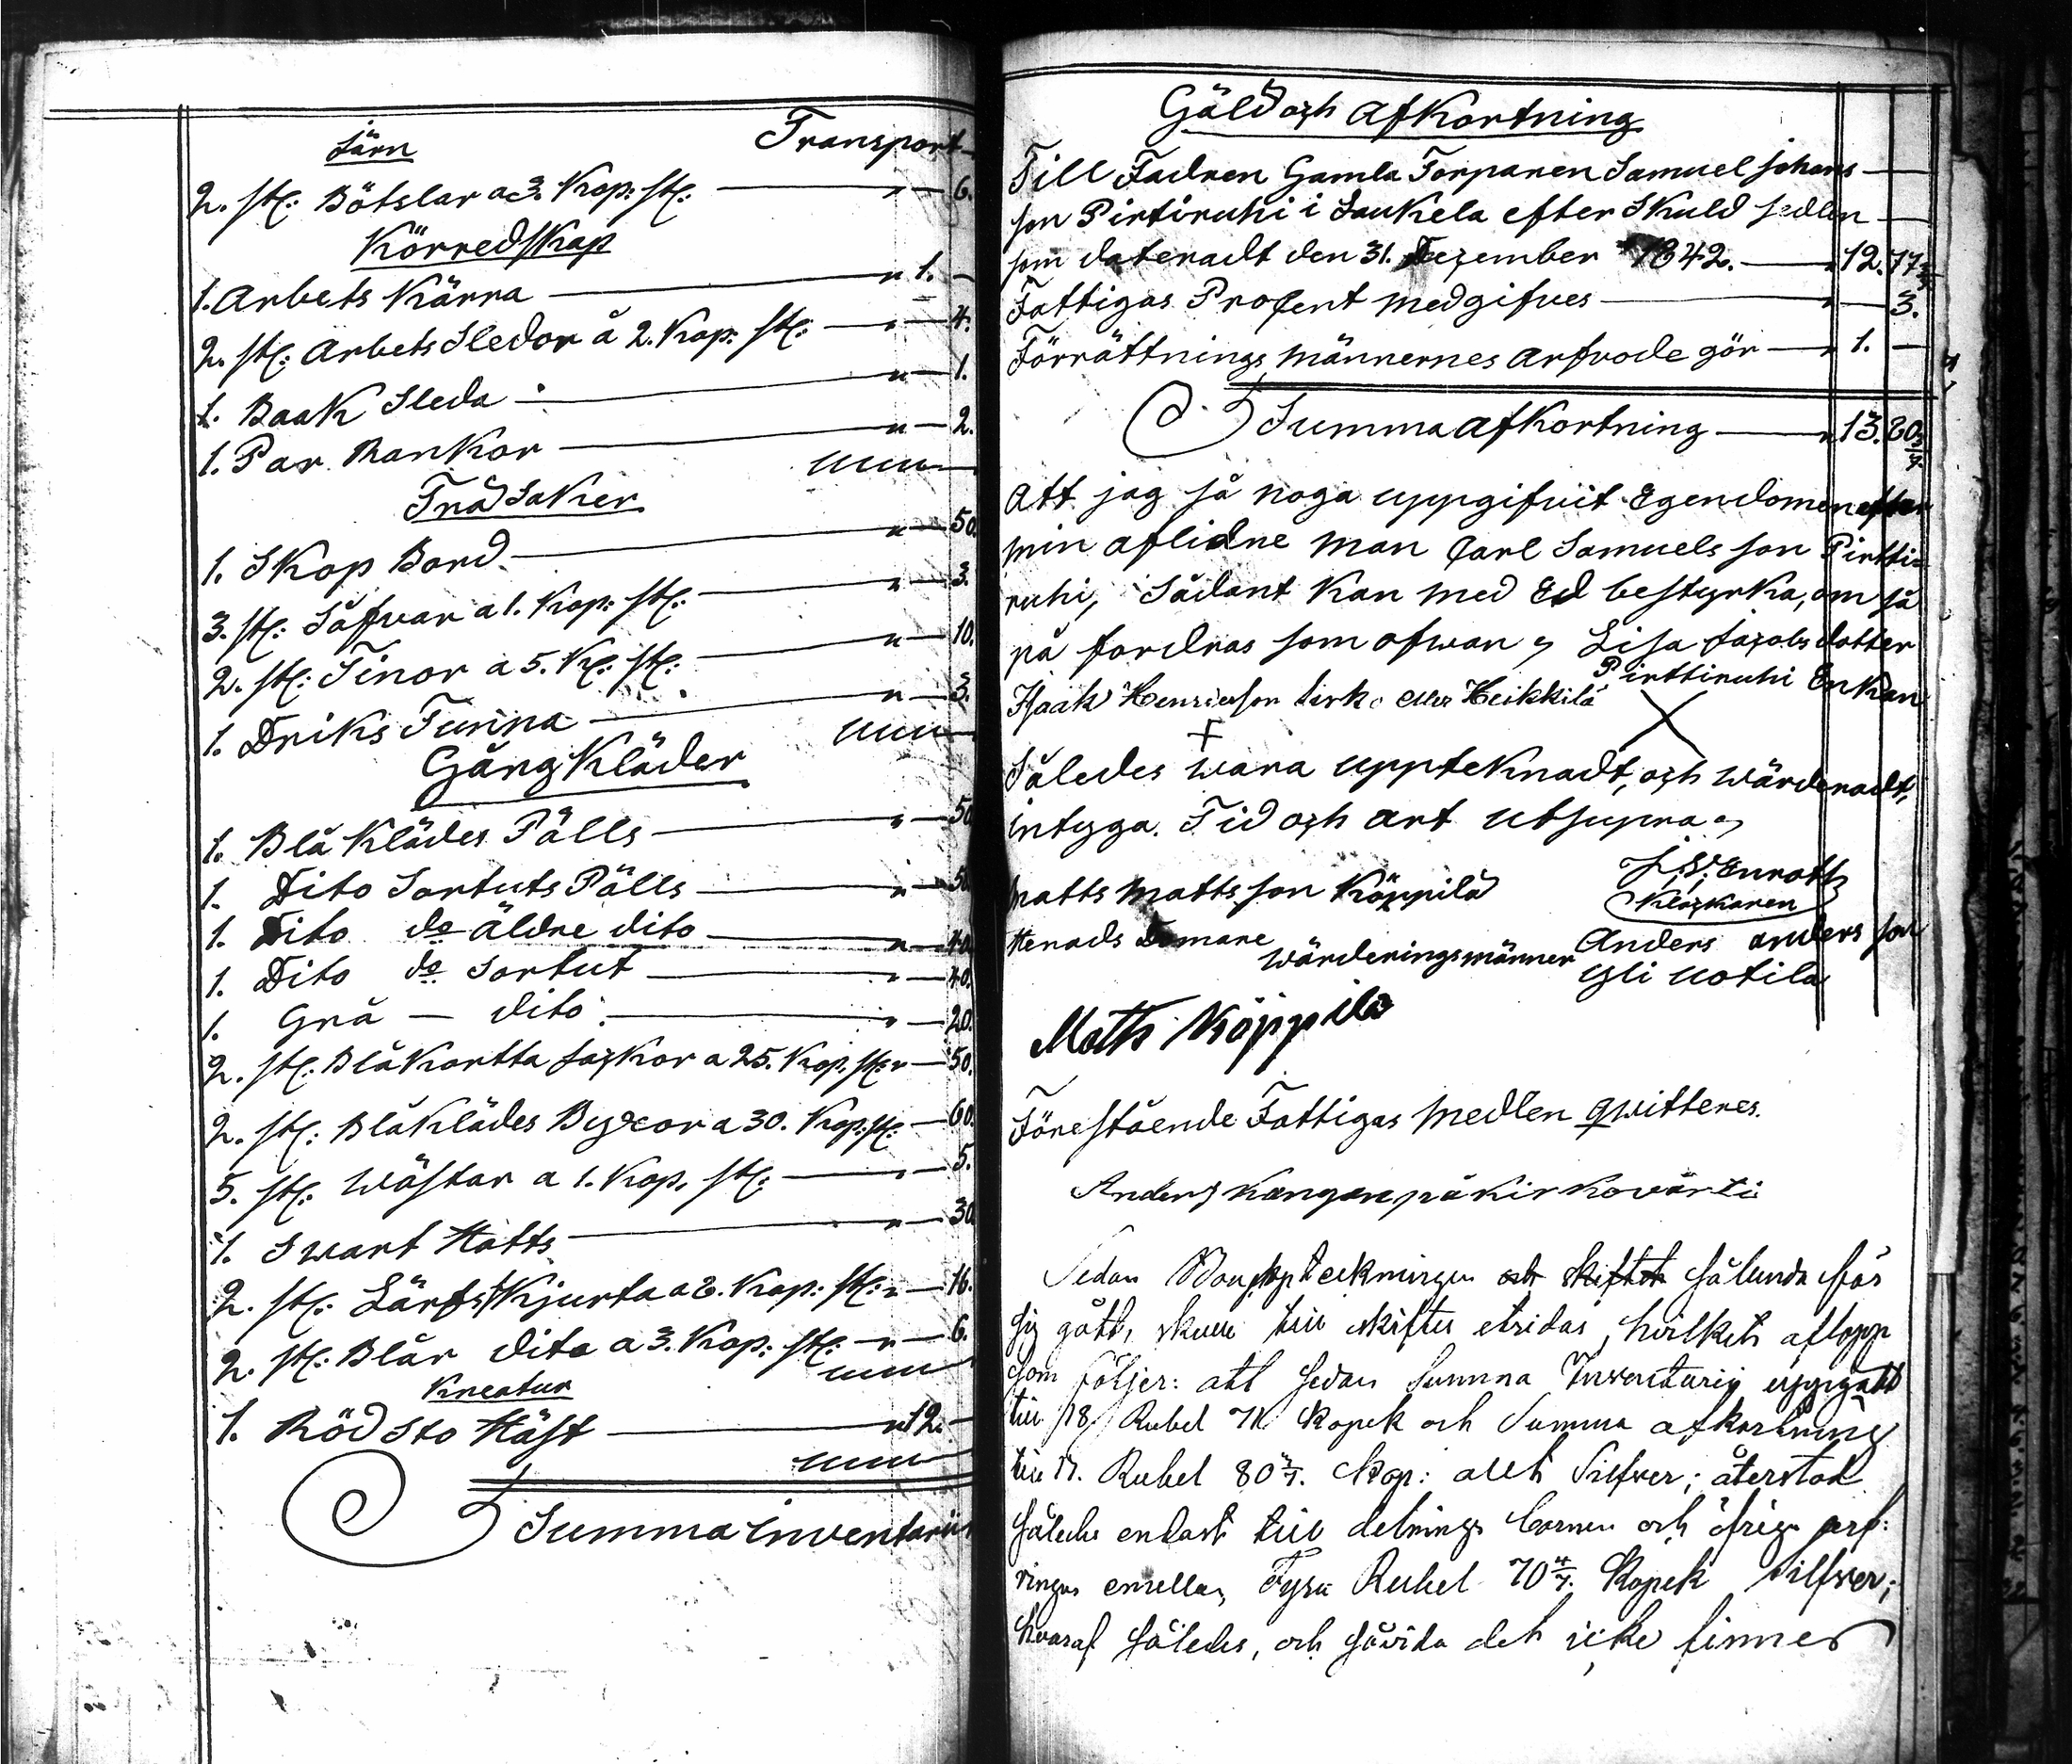 Järn Transport
2. st: Bötslar a 3. Kop: st: " — 6.
Körredskap
1. Arbets Kärra " 1. —
2. st: Arbets Sledor á 2. Kop: st: " — 4.
1. Baak Sleda " — 1.
1. Par Bankor " — 2.
Träd Saker
1. Skop Bord " — 50.
3. st: Såfvar a 1. Kop: st: " — 3.
2. st: Tinor a 5. K: st: " — 10.
1. Driks Tunna " — 3.
Gång Kläder
1. Blå Klädes Pälls " — 50
1. Dito Sortuts Pälls " — 50.
1. Dito do äldre dito " — 40.
1. Dito do Sortut " — 40.
1. Grå — dito " — 20.
2. st: Blå Kortta Jackor a 25. Kop. st: " — 50.
2. st: Blå Klädes Byxor a 30. Kop: st: — 60.
5. st: Wästar a 1. Kop. st: " — 5.
1. Swart Hatts " — 30
2. st: Lärfs Skjurta a 8. Kop: st: " — 16.
2. st: Blår dito a 3. Kop: st: " — 6.
Kreatur
1. Röd Sto Häst " 12. —
Summa inventariu
Gäld och Afkortning
Till Fadren Gamla Torparen Samuel Johans
son Pirtiruhi i Saukela efter Skuld sedlen
som dateradt den 31. Dezember 1842. " 12. 77
Fattigas Procent medgifves " — 3.
Förrättnings männernes Arfvode gör " 1. —
Summa Afkortning " 13. 80
Att jag så noga uppgifvit Egendomen efter
min aflidne man Carl Samuels son Pirtti=
ruhi, Sådant Kan med Ed bestyrka, om så
på fordras som ofwan Lisa Jacobs dotter
Pirttiruhi Enkan
Isaak Henricsson eller Heikkilä
Således wara uppteknadt, och wärderadt,
intyga. Tid och art utsupra
J. W. Enroth
Klockaren
Matts Matts son Köppilä
Herads Domare
Wärderingsmänner Anders Anders son
Yli Uotila
Matts Köppilä
Förestående Fattigas Medlen qwitteres.
Anders Kangas på Kirkowärti
Sedan Bouppteckningen och skiftet sålunda för
sig gått, skulle till skiftes skridas, hvilket aflopp
som följer: att sedan Summa Inventarii uppgått
till 18 Rubel 71 Kopek och Summa afkortning
till 13. Rubel 80 Kop: allt Silfver; återstod
således endast till delnings barnen och öfriga arf:
ringar emellan, Fyra Rubel 70 4/7. Kopek Silfver;
hvaraf således, och såvida det icke finnes